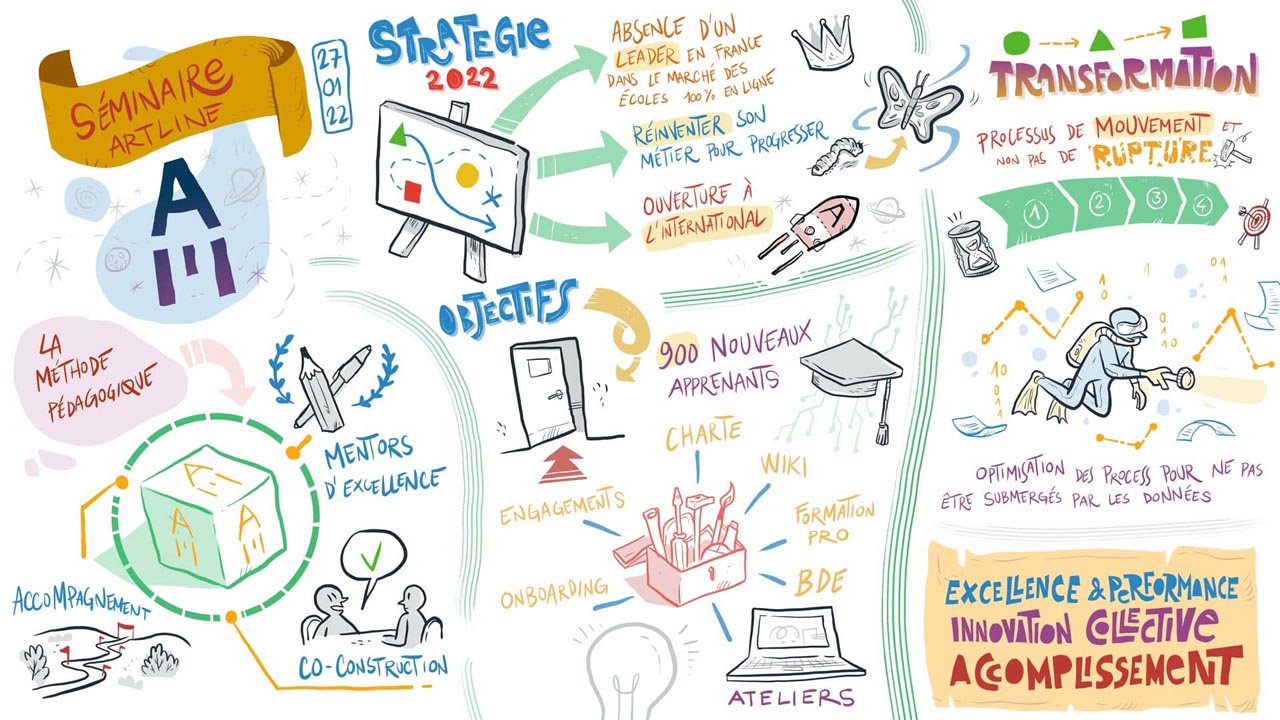 SÉMINAIRE
ARTLINE
27
01
22
A
STRATEGIE
2022
ABSENCE D'UN
LEADER EN FRANCE
DANS LE MARCHÉ DES
ÉCOLES 100% EN LIGNE
RÉINVENTER SON
MÉTIER POUR PROGRESSER
OUVERTURE À
L'INTERNATIONAL
A
TRANSFORMATION
PROCESSUS DE MOUVEMENT ET
NON PAS DE RUPTURE
1
2
3
4
LA
MÉTHODE
PÉDAGOGIQUE
MENTORS
D'EXCELLENCE
A
A
A
ACCOMPAGNEMENT
CO-CONSTRUCTION
OBJECTIFS
900 NOUVEAUX
APPRENANTS
CHARTE
WIKI
ENGAGEMENTS
FORMATION
PRO
ONBOARDING
BDE
ATELIERS
1
10
0
01
1
10
0
1
10
0
1
OPTIMISATION DES PROCESS POUR NE PAS
ÊTRE SUBMERGÉS PAR LES DONNÉES
EXCELLENCE & PERFORMANCE
INNOVATION COLLECTIVE
ACCOMPLISSEMENT